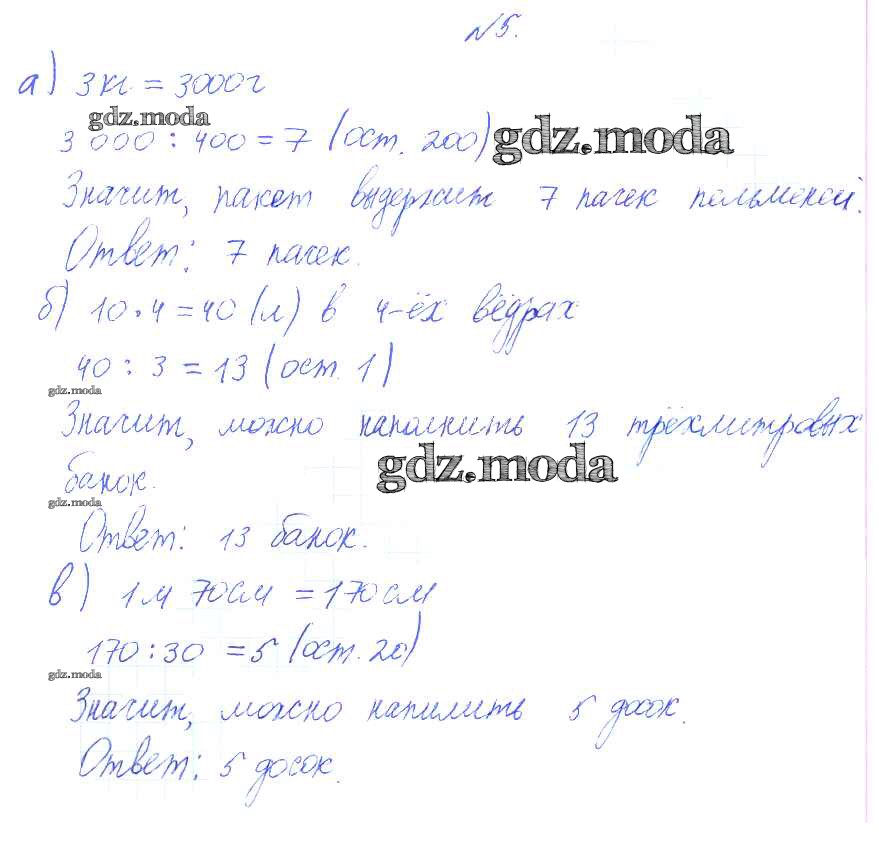 №5.
а) 3кг = 3000г
gdz.moda
3 000 : 400 = 7 (ост. 200)
gdz.moda
Значит, пакет выдержит 7 пачек пельменей.
Ответ: 7 пачек.
б) 10 · 4 = 40 (л) в 4-ёх вёдрах
40 : 3 = 13 (ост. 1)
gdz.moda
Значит, можно наполнить 13 трёхлитровых
банок.
gdz.moda
gdz.moda
Ответ: 13 банок.
в) 1м 70см = 170см
170 : 30 = 5 (ост. 20)
gdz.moda
Значит, можно напилить 5 досок.
Ответ: 5 досок.